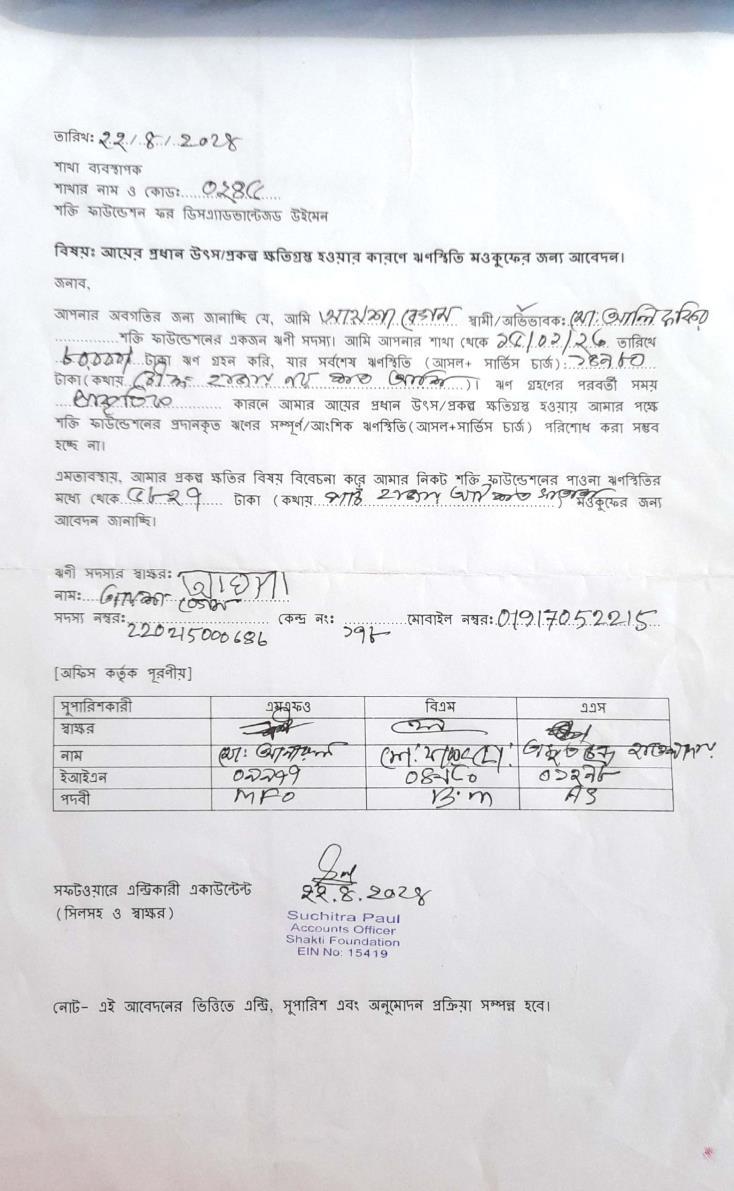 তারিখ: ২২/৪/২০২৪
শাখা ব্যবস্থাপক
শাখার নাম ও কোড: ০২৪৫
শক্তি ফাউন্ডেশন ফর ডিসএ্যাডভান্টেজড উইমেন
বিষয়: আয়ের প্রধান উৎস/প্রকল্প ক্ষতিগ্রস্থ হওয়ার কারণে ঋণস্থিতি মওকুফের জন্য আবেদন।
জনাব,
আপনার অবগতির জন্য জানাচ্ছি যে, আমি বেগম স্বামী/অভিভাবক: মো: আলি
শক্তি ফাউন্ডেশনের একজন ঋনী সদস্য। আমি আপনার শাখা থেকে তারিখে
টাকা ঋণ গ্রহন করি, যার সর্বশেষ ঋণস্থিতি (আসল+ সার্ভিস চার্জ):
টাকা (কথায় হাজার নয় শত আশি)। ঋণ গ্রহণের পরবর্তী সময়
কারনে আমার আয়ের প্রধান উৎস/প্রকল্প ক্ষতিগ্রস্থ হওয়ায় আমার পক্ষে
শক্তি ফাউন্ডেশনের প্রদানকৃত ঋণের সম্পূর্ণ/আংশিক ঋণস্থিতি (আসল+সার্ভিস চার্জ) পরিশোধ করা সম্ভব
হচ্ছে না।
এমতাবস্থায়, আমার প্রকল্প ক্ষতির বিষয় বিবেচনা করে আমার নিকট শক্তি ফাউন্ডেশনের পাওনা ঋণস্থিতির
মধ্যে থেকে ৫৮২৭ টাকা (কথায় পাঁচ হাজার আট শত সাতাশ) মওকুফের জন্য
আবেদন জানাচ্ছি।
ঋনী সদস্যর স্বাক্ষর:
নাম: বেগম
সদস্য নম্বর: 220215000686 কেন্দ্র নং: মোবাইল নম্বর: 01917052215
[অফিস কর্তৃক পূরণীয়]
সুপারিশকারী এমএফও বিএম এএস
স্বাক্ষর
নাম মো: চন্দ্র
ইআইএন
পদবী MFO B.m AS
২২.৪.২০২৪
সফটওয়ারে এন্ট্রিকারী একাউন্টেন্ট
(সিলসহ ও স্বাক্ষর)
Suchitra Paul
Accounts Officer
Shakti Foundation
EIN No: 15419
নোট- এই আবেদনের ভিত্তিতে এন্ট্রি, সুপারিশ এবং অনুমোদন প্রক্রিয়া সম্পন্ন হবে।